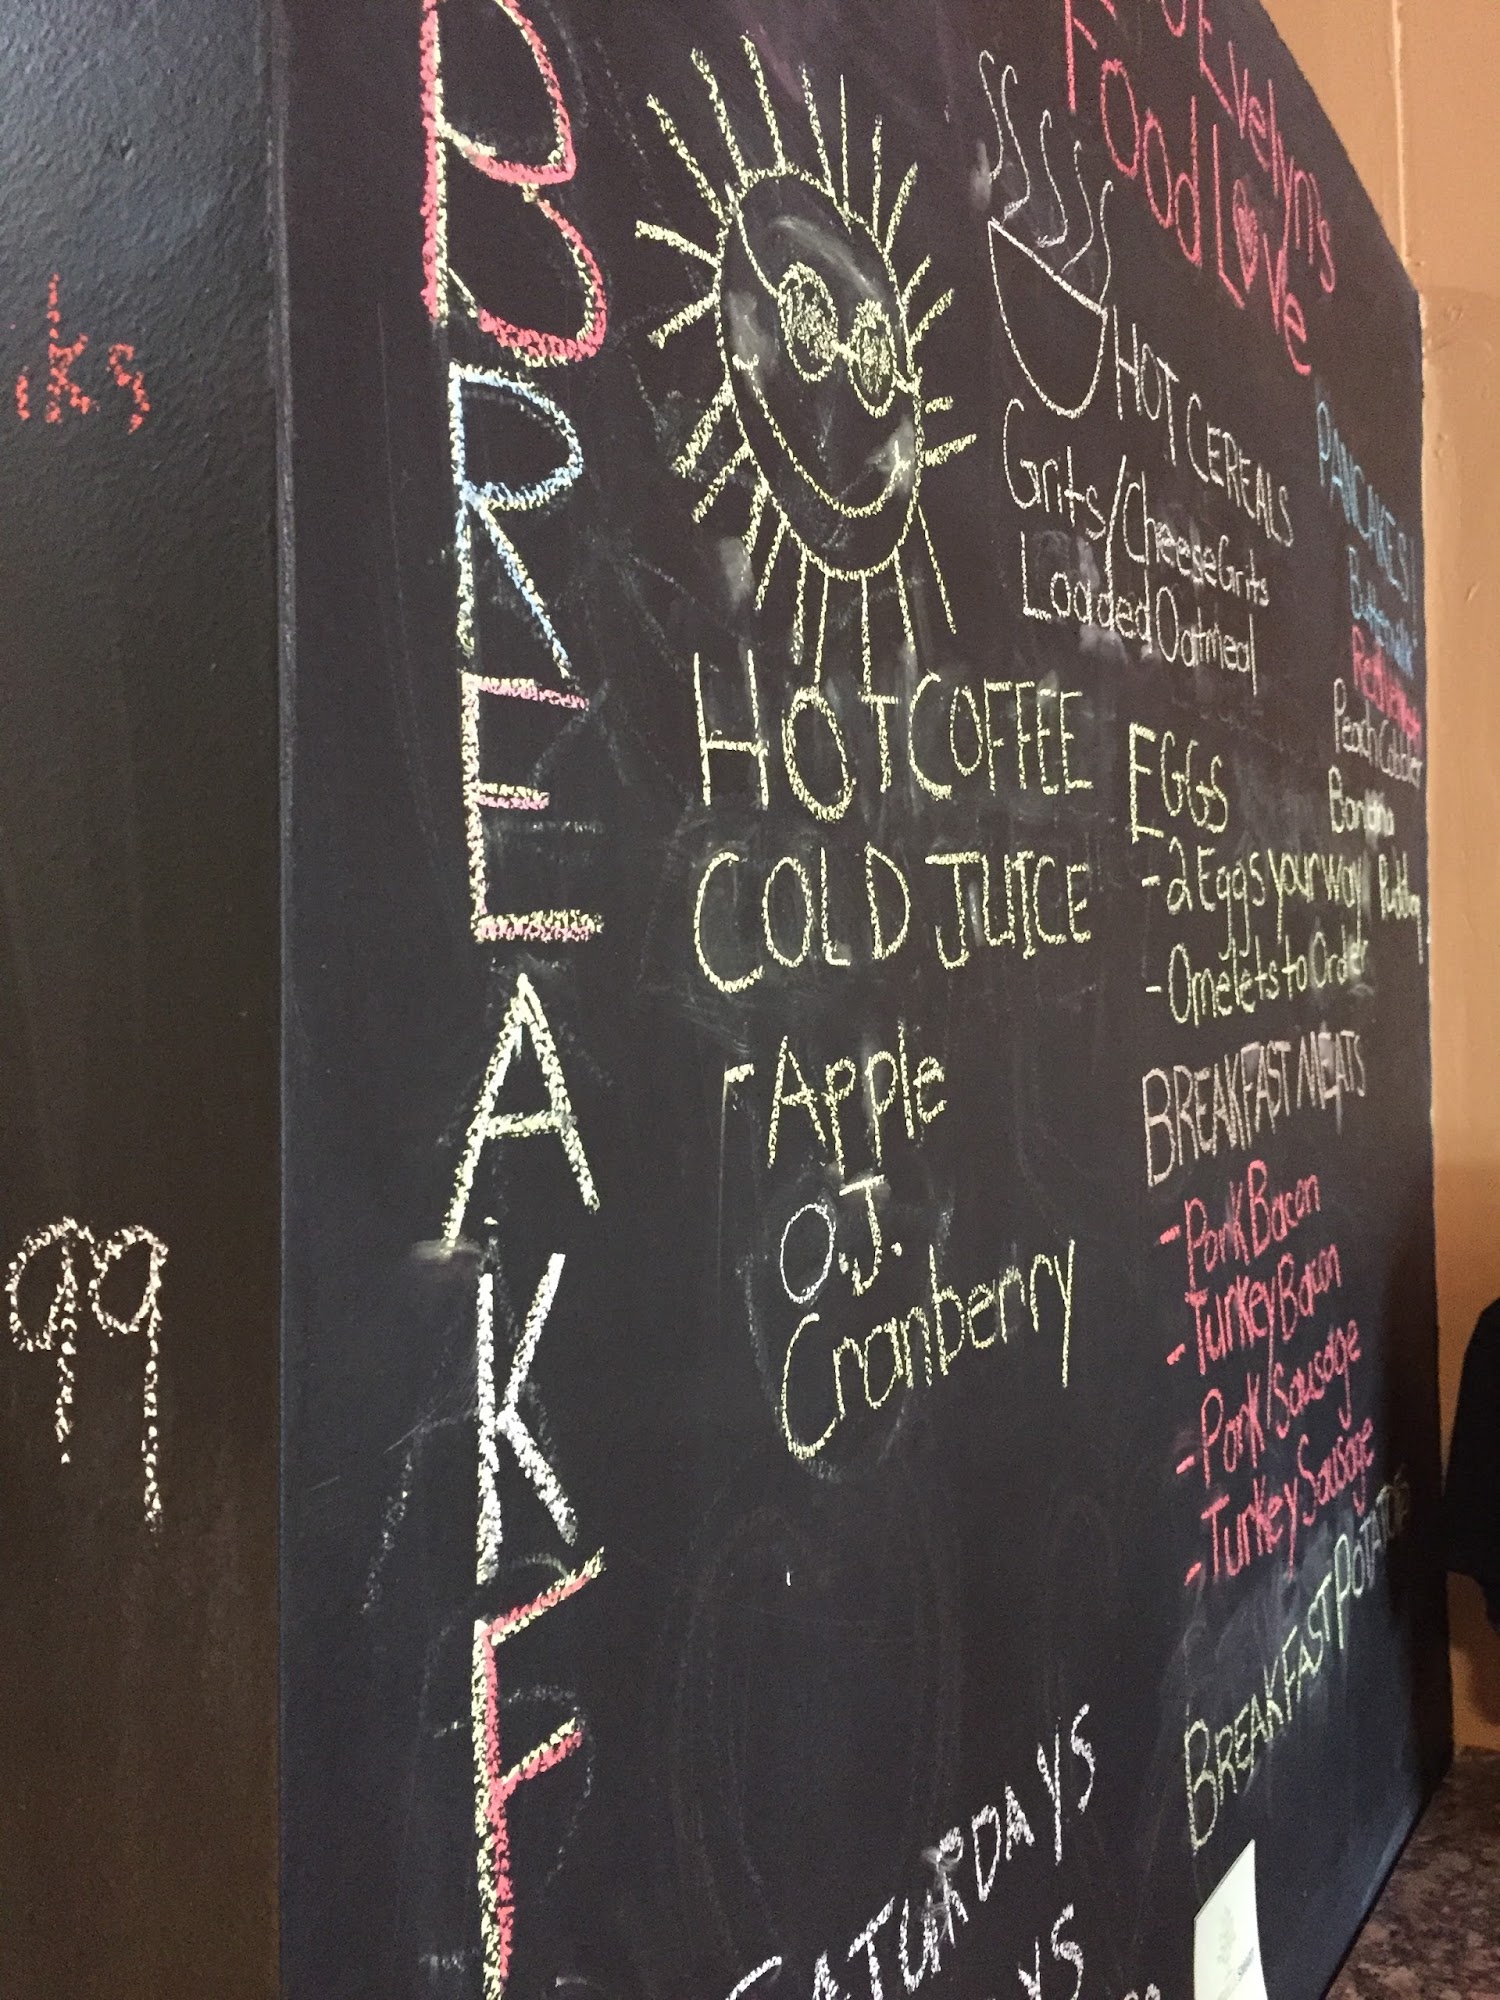 iks
99
BREAKF
Evelyns
Food Love
HOT CEREALS
Grits/Cheese Grits
Loaded Oatmeal
HOT COFFEE
COLD JUICE
- Apple
O.J.
Cranberry
EGGS
- 2 Eggs your way
- Omelets to Order
BREAKFAST MEATS
- Pork Bacon
- Turkey Bacon
- Pork/Sausage
- Turkey Sausage
BREAKFAST POTATOES
PANCAKES!
Peach Cobbler
Banana
Pudding
SATURDAYS